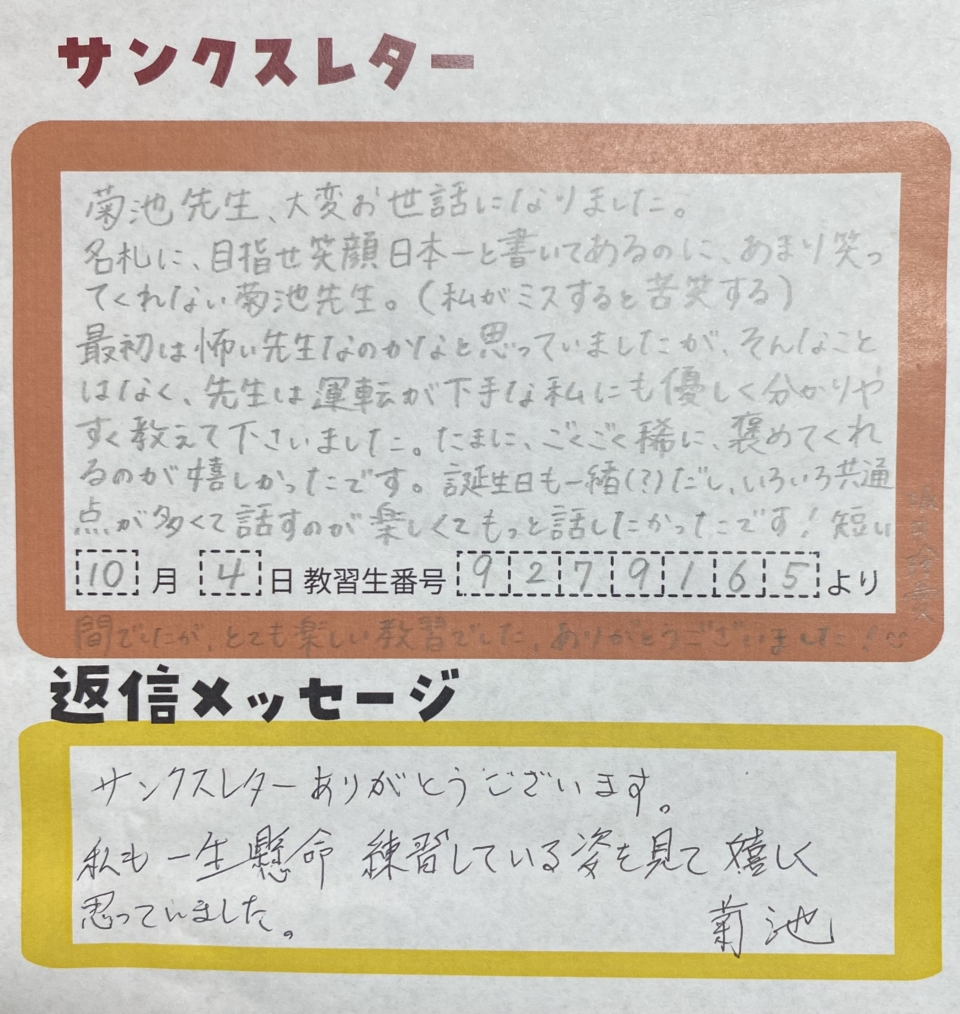 サンクスレター
菊池先生、大変お世話になりました。
名札に、目指せ笑顔日本一と書いてあるのに、あまり笑っ
てくれない菊池先生。(私がミスすると苦笑する)
最初は怖い先生なのかなと思っていましたが、そんなこと
はなく、先生は運転が下手な私にも優しく分かりや
すく教えて下さいました。たまに、ごくごく稀に、褒めてくれ
るのが嬉しかったです。誕生日も一緒(?)だし、いろいろ共通
点が多くて話すのが楽しくてもっと話したかったです!短い
間でしたが、とても楽しい教習でした。ありがとうございました!
10月4日 教習生番号 9279165より
返信メッセージ
サンクスレターありがとうございます。
私も一生懸命 練習している姿を見て嬉しく
思っていました。
菊池